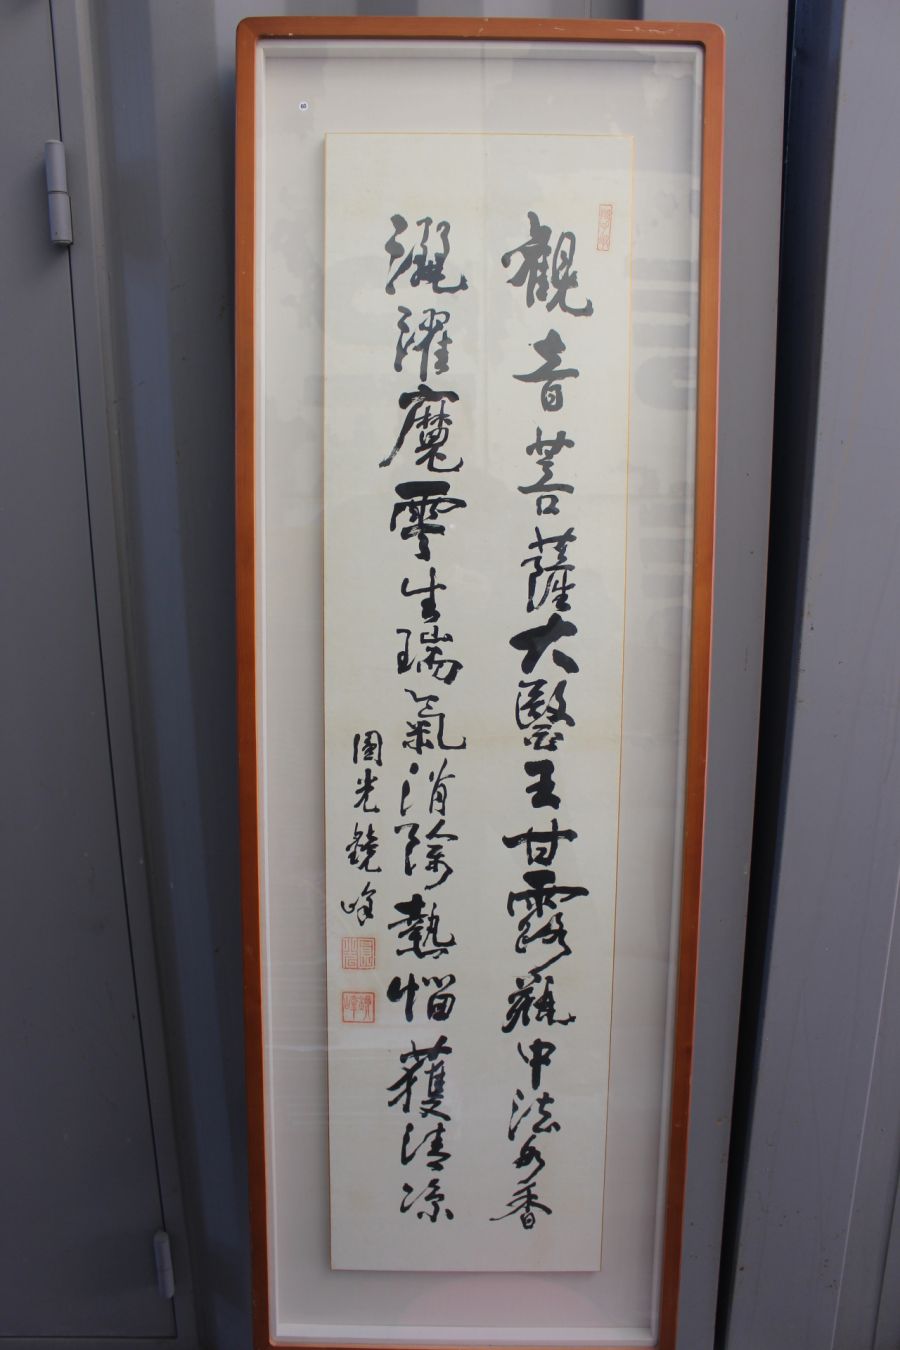 觀音菩薩大醫王甘露瓶中法水香
灑濯魔雲生瑞氣消除熱惱獲清涼
圓光鏡峰